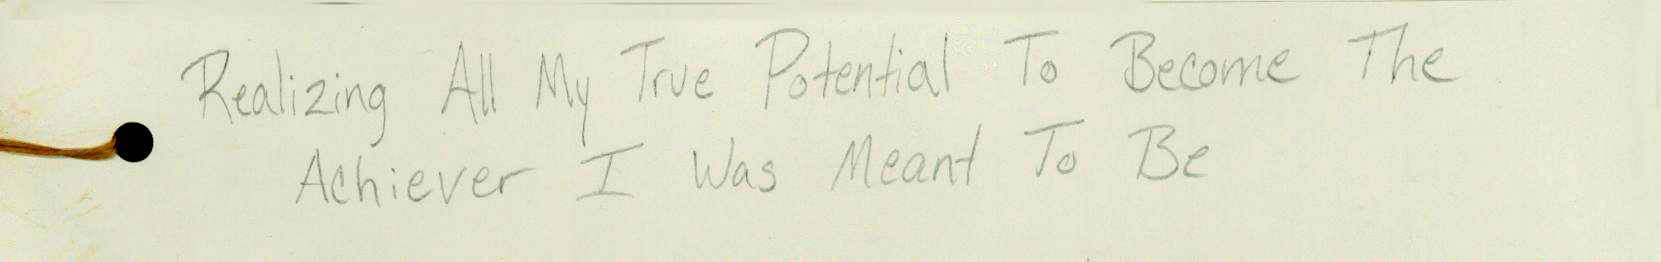 Realizing All My True Potential To Become The
Achiever I Was Meant To Be